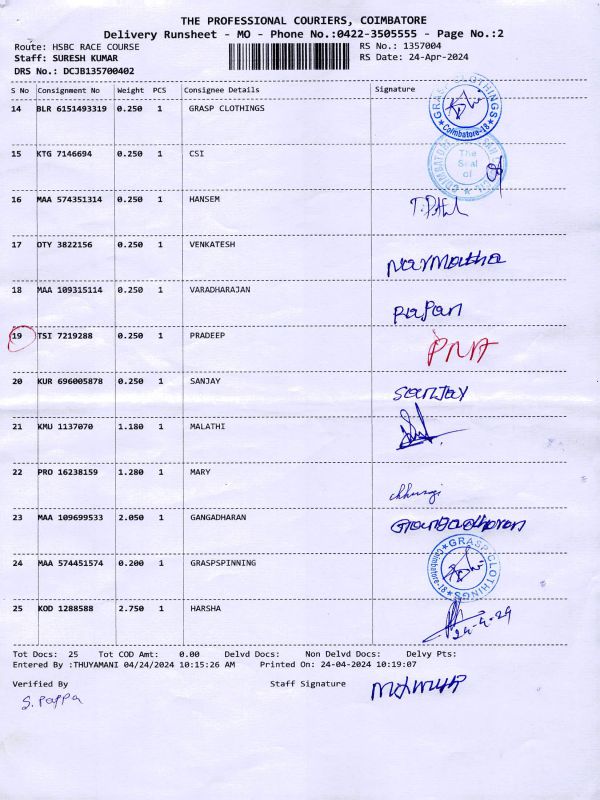 THE PROFESSIONAL COURIERS, COIMBATORE
Delivery Runsheet - MO - Phone No.:0422-3505555 - Page No.:2
Route: HSBC RACE COURSE RS No.: 1357004
Staff: SURESH KUMAR RS Date: 24-Apr-2024
DRS No.: DCJB135700402
S No Consignment No Weight PCS Consignee Details Signature
14 BLR 6151493319 0.250 1 GRASP CLOTHINGS GRASP CLOTHINGS Coimbatore-18
15 KTG 7146694 0.250 1 CSI The Seal of
16 MAA 574351314 0.250 1 HANSEM
17 OTY 3822156 0.250 1 VENKATESH Narmatha
18 MAA 109315114 0.250 1 VARADHARAJAN Rajan
19 TSI 7219288 0.250 1 PRADEEP PNA
20 KUR 696005878 0.250 1 SANJAY Sanjay
21 KMU 1137070 1.180 1 MALATHI
22 PRO 16238159 1.280 1 MARY
23 MAA 109699533 2.050 1 GANGADHARAN Gangadharan
24 MAA 574451574 0.200 1 GRASPSPINNING GRASP CLOTHINGS Coimbatore-18
25 KOD 1288588 2.750 1 HARSHA 24-4-24
Tot Docs: 25 Tot COD Amt: 0.00 Delvd Docs: Non Delvd Docs: Delvy Pts:
Entered By :THUYAMANI 04/24/2024 10:15:26 AM Printed On: 24-04-2024 10:19:07
Verified By Staff Signature
S. Pappa